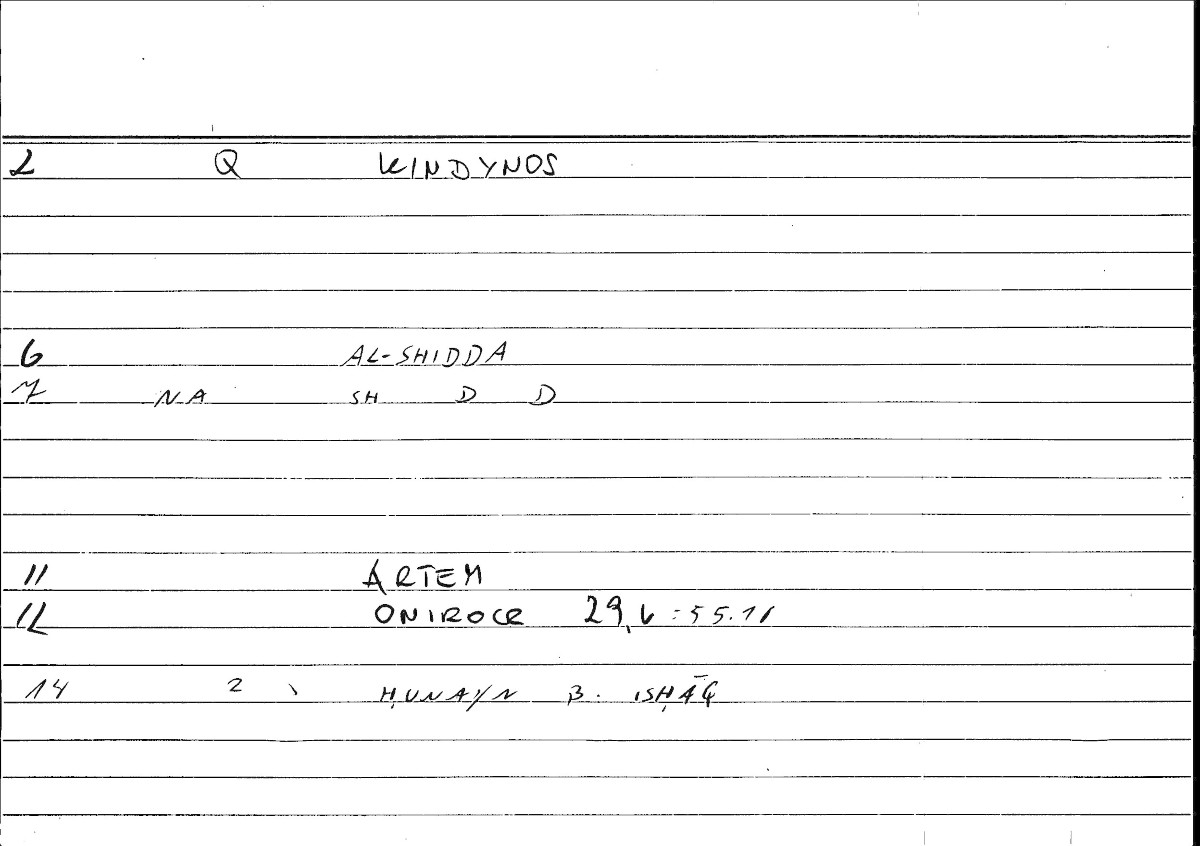 2 Q KINDYNOS
6 AL-SHIDDA
7 NA SH D D
11 ARTEM
12 ONIROCR 29,6 : 55.11
14 2 \ ḤUNAYN B. ISḤĀQ